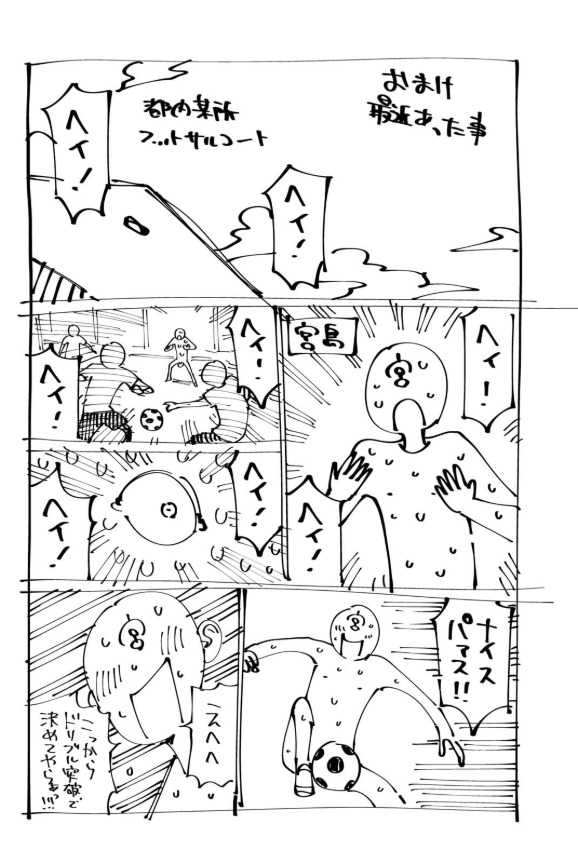 おまけ
最近あった事
都内某所
フットサルコート
ヘイ!
ヘイ!
ヘイ!
宮島
宮
ヘイ!
ヘイ!
ヘイ!
ヘイ!
ヘイ!
ナイス
パァス!!
宮
宮
こっから
ドリブル突破で
決めてやらぁっ!!!